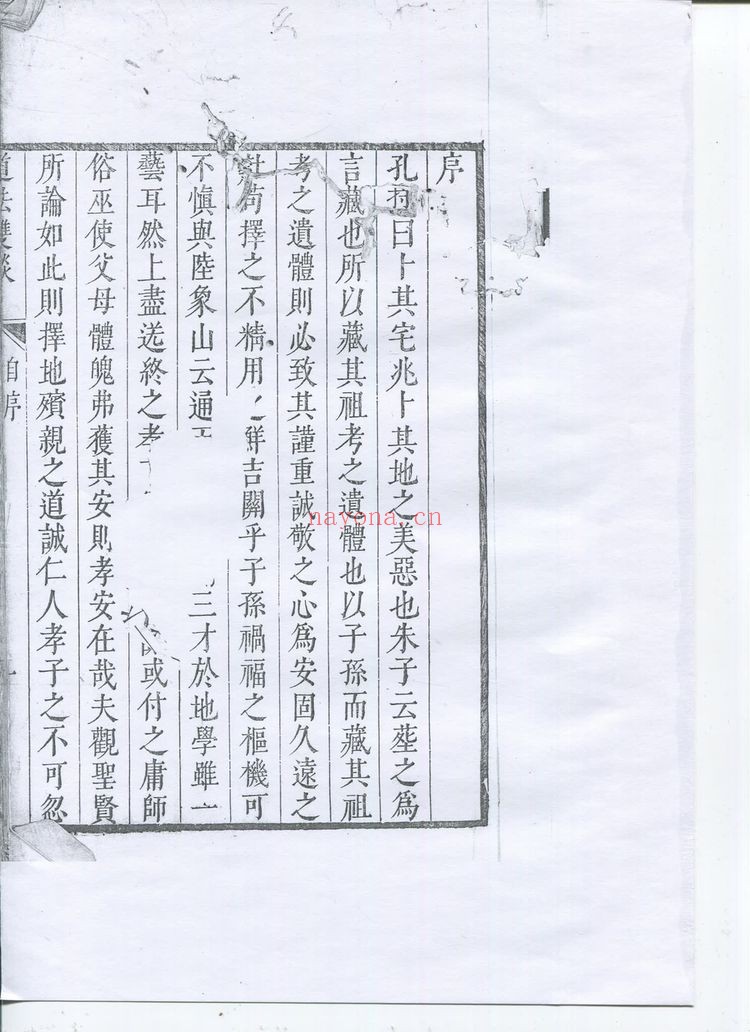 序
孔子曰卜其宅兆卜其地之美惡也朱子云塟之爲
言藏也所以藏其祖考之遺體也以子孫而藏其祖
考之遺體則必致其謹重誠敬之心爲安固久遠之
計苟擇之不精用 鮮吉關乎子孫禍福之樞機可
不慎與陸象山云通 三才於地學雖一
藝耳然上盡送終之孝 或付之庸師
俗巫使父母體魄弗獲其安則孝安在哉夫觀聖賢
所論如此則擇地殯親之道誠仁人孝子之不可忽
道法雙談 自序
nayona.cn